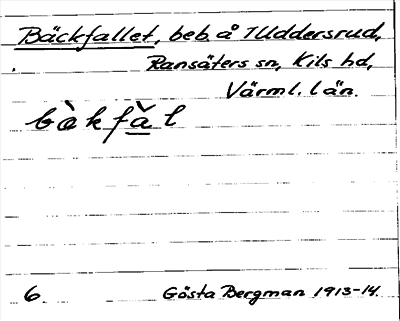 Bäckfallet, beb. å Uddersrud,
Ransäters sn, Kils hd,
Värml. län.
bàkfǎl
6. Gösta Bergman 1913-14.